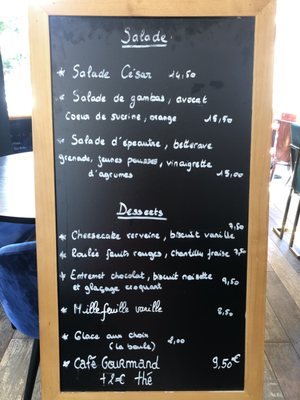 Salade
* Salade César 14,50
* Salade de gambas, avocat
coeur de sucrine, orange 18,50
* Salade d'épeautre, betterave
grenade, jeunes pousses, vinaigrette
d'agrumes 15,00
Desserts
* Cheesecake verveine, biscuit vanille 9,50
* Roulée fruits rouges, chantilly fraise 9,50
* Entremet chocolat, biscuit noisette
et glaçage croquant 9,50
* Millefeuille vanille 8,50
* Glace aux choix 2,00
(la boule)
* Café Gourmand 9,50€
+2€ thé